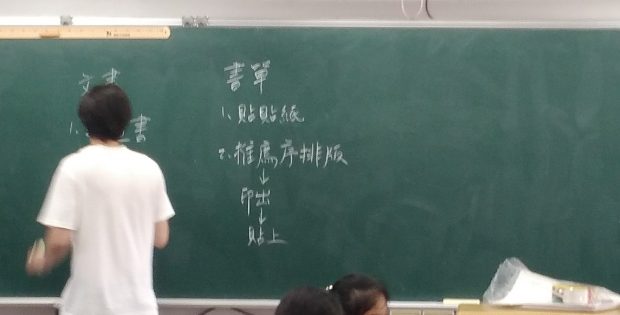 文書
1. 書
書單
1. 貼貼紙
2. 推薦序排版
↓
印出
↓
貼上